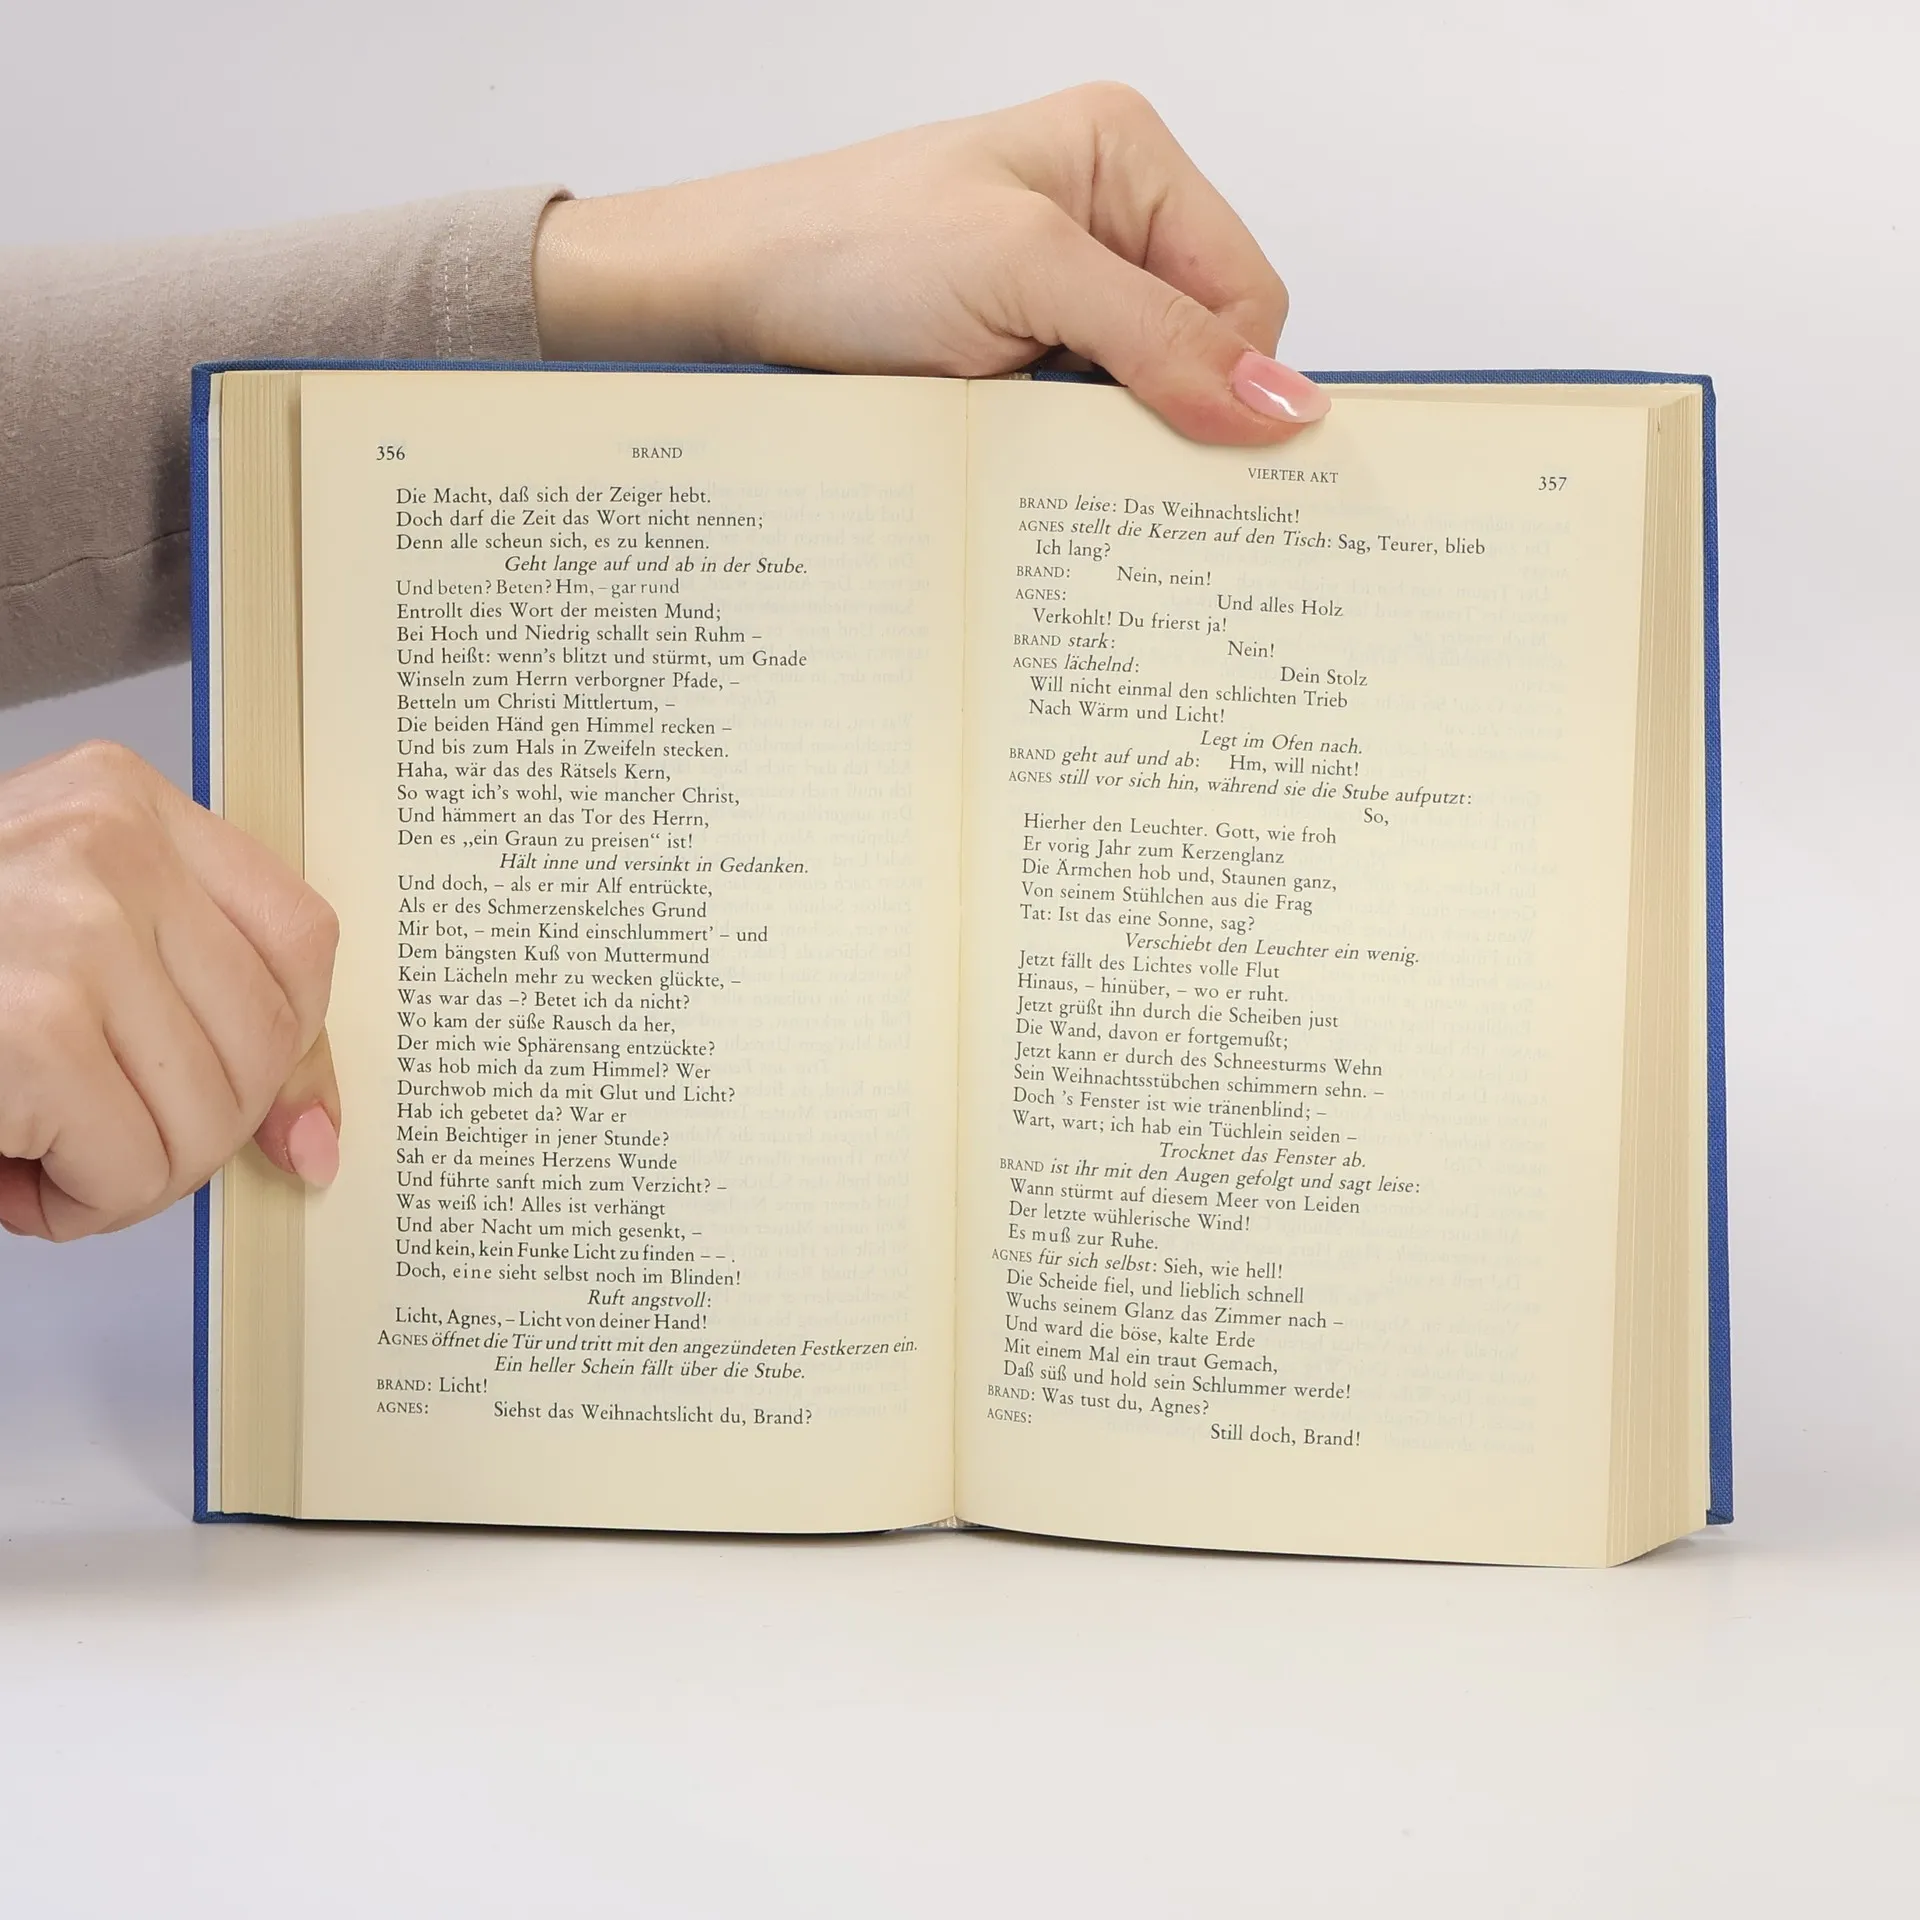 356
BRAND
Die Macht, daß sich der Zeiger hebt.
Doch darf die Zeit das Wort nicht nennen;
Denn alle scheun sich, es zu kennen.
Geht lange auf und ab in der Stube.
Und beten? Beten? Hm, – gar rund
Entrollt dies Wort der meisten Mund;
Bei Hoch und Niedrig schallt sein Ruhm –
Und heißt: wenn's blitzt und stürmt, um Gnade
Winseln zum Herrn verborgner Pfade, –
Betteln um Christi Mittlertum, –
Die beiden Händ gen Himmel recken –
Und bis zum Hals in Zweifeln stecken.
Haha, wär das des Rätsels Kern,
So wagt ich's wohl, wie mancher Christ,
Und hämmert an das Tor des Herrn,
Den es „ein Graun zu preisen“ ist!
Hält inne und versinkt in Gedanken.
Und doch, – als er mir Alf entrückte,
Als er des Schmerzenskelches Grund
Mir bot, – mein Kind einschlummert' – und
Dem bängsten Kuß von Muttermund
Kein Lächeln mehr zu wecken glückte, –
Was war das –? Betet ich da nicht?
Wo kam der süße Rausch da her,
Der mich wie Sphärensang entzückte?
Was hob mich da zum Himmel? Wer
Durchwob mich da mit Glut und Licht?
Hab ich gebetet da? War er
Mein Beichtiger in jener Stunde?
Sah er da meines Herzens Wunde
Und führte sanft mich zum Verzicht? –
Was weiß ich! Alles ist verhängt
Und aber Nacht um mich gesenkt, –
Und kein, kein Funke Licht zu finden – –
Doch, eine sieht selbst noch im Blinden!
Ruft angstvoll:
Licht, Agnes, – Licht von deiner Hand!
AGNES öffnet die Tür und tritt mit den angezündeten Festkerzen ein.
Ein heller Schein fällt über die Stube.
BRAND: Licht!
AGNES: Siehst das Weihnachtslicht du, Brand?
VIERTER AKT
357
BRAND leise: Das Weihnachtslicht!
AGNES stellt die Kerzen auf den Tisch: Sag, Teurer, blieb
Ich lang?
BRAND: Nein, nein!
AGNES: Und alles Holz
Verkohlt! Du frierst ja!
BRAND stark: Nein!
AGNES lächelnd: Dein Stolz
Will nicht einmal den schlichten Trieb
Nach Wärm und Licht!
Legt im Ofen nach.
BRAND geht auf und ab: Hm, will nicht!
AGNES still vor sich hin, während sie die Stube aufputzt:
So,
Hierher den Leuchter. Gott, wie froh
Er vorig Jahr zum Kerzenglanz
Die Ärmchen hob und, Staunen ganz,
Von seinem Stühlchen aus die Frag
Tat: Ist das eine Sonne, sag?
Verschiebt den Leuchter ein wenig.
Jetzt fällt des Lichtes volle Flut
Hinaus, – hinüber, – wo er ruht.
Jetzt grüßt ihn durch die Scheiben just
Die Wand, davon er fortgemußt;
Jetzt kann er durch des Schneesturms Wehn
Sein Weihnachtsstübchen schimmern sehn. –
Doch 's Fenster ist wie tränenblind; –
Wart, wart; ich hab ein Tüchlein seiden –
Trocknet das Fenster ab.
BRAND ist ihr mit den Augen gefolgt und sagt leise:
Wann stürmt auf diesem Meer von Leiden
Der letzte wühlerische Wind!
Es muß zur Ruhe.
AGNES für sich selbst: Sieh, wie hell!
Die Scheide fiel, und lieblich schnell
Wuchs seinem Glanz das Zimmer nach –
Und ward die böse, kalte Erde
Mit einem Mal ein traut Gemach,
Daß süß und hold sein Schlummer werde!
BRAND: Was tust du, Agnes?
AGNES: Still doch, Brand!